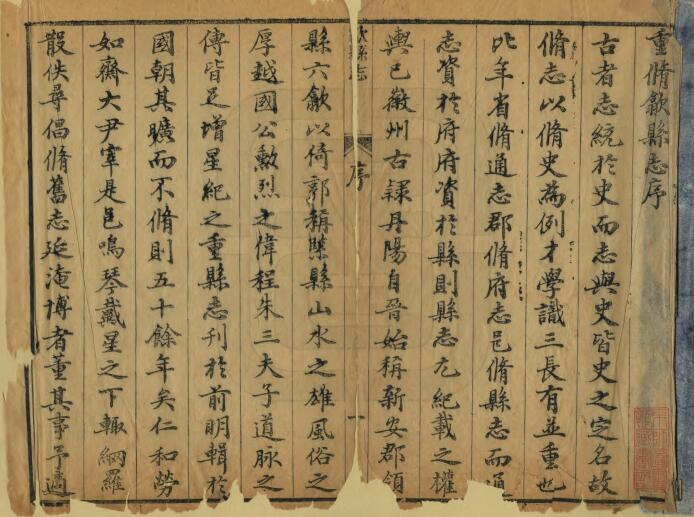 重脩歙縣志序
古者志統於史而志與史皆史之定名故
脩志以脩史為例才學識三長有並重也
比年省脩通志郡脩府志邑脩縣志而通
志資於府府資於縣則縣志尤紀載之權
輿已徽州古隸丹陽自晉始稱新安郡領
歙縣志
序
一
縣六歙以倚郭稱縣山水之雄風俗之
厚越國公勳烈之偉程朱三夫子道脉之
傳皆足增星紀之重縣志刊於前明輯於
國朝其曠而不脩則五十餘年矣仁和勞
如齋大尹宰是邑鳴琴戴星之下輙網羅
散佚尋倡脩舊志延淹博者董其事予適